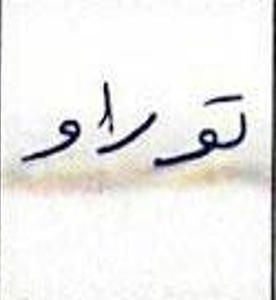 تو راو